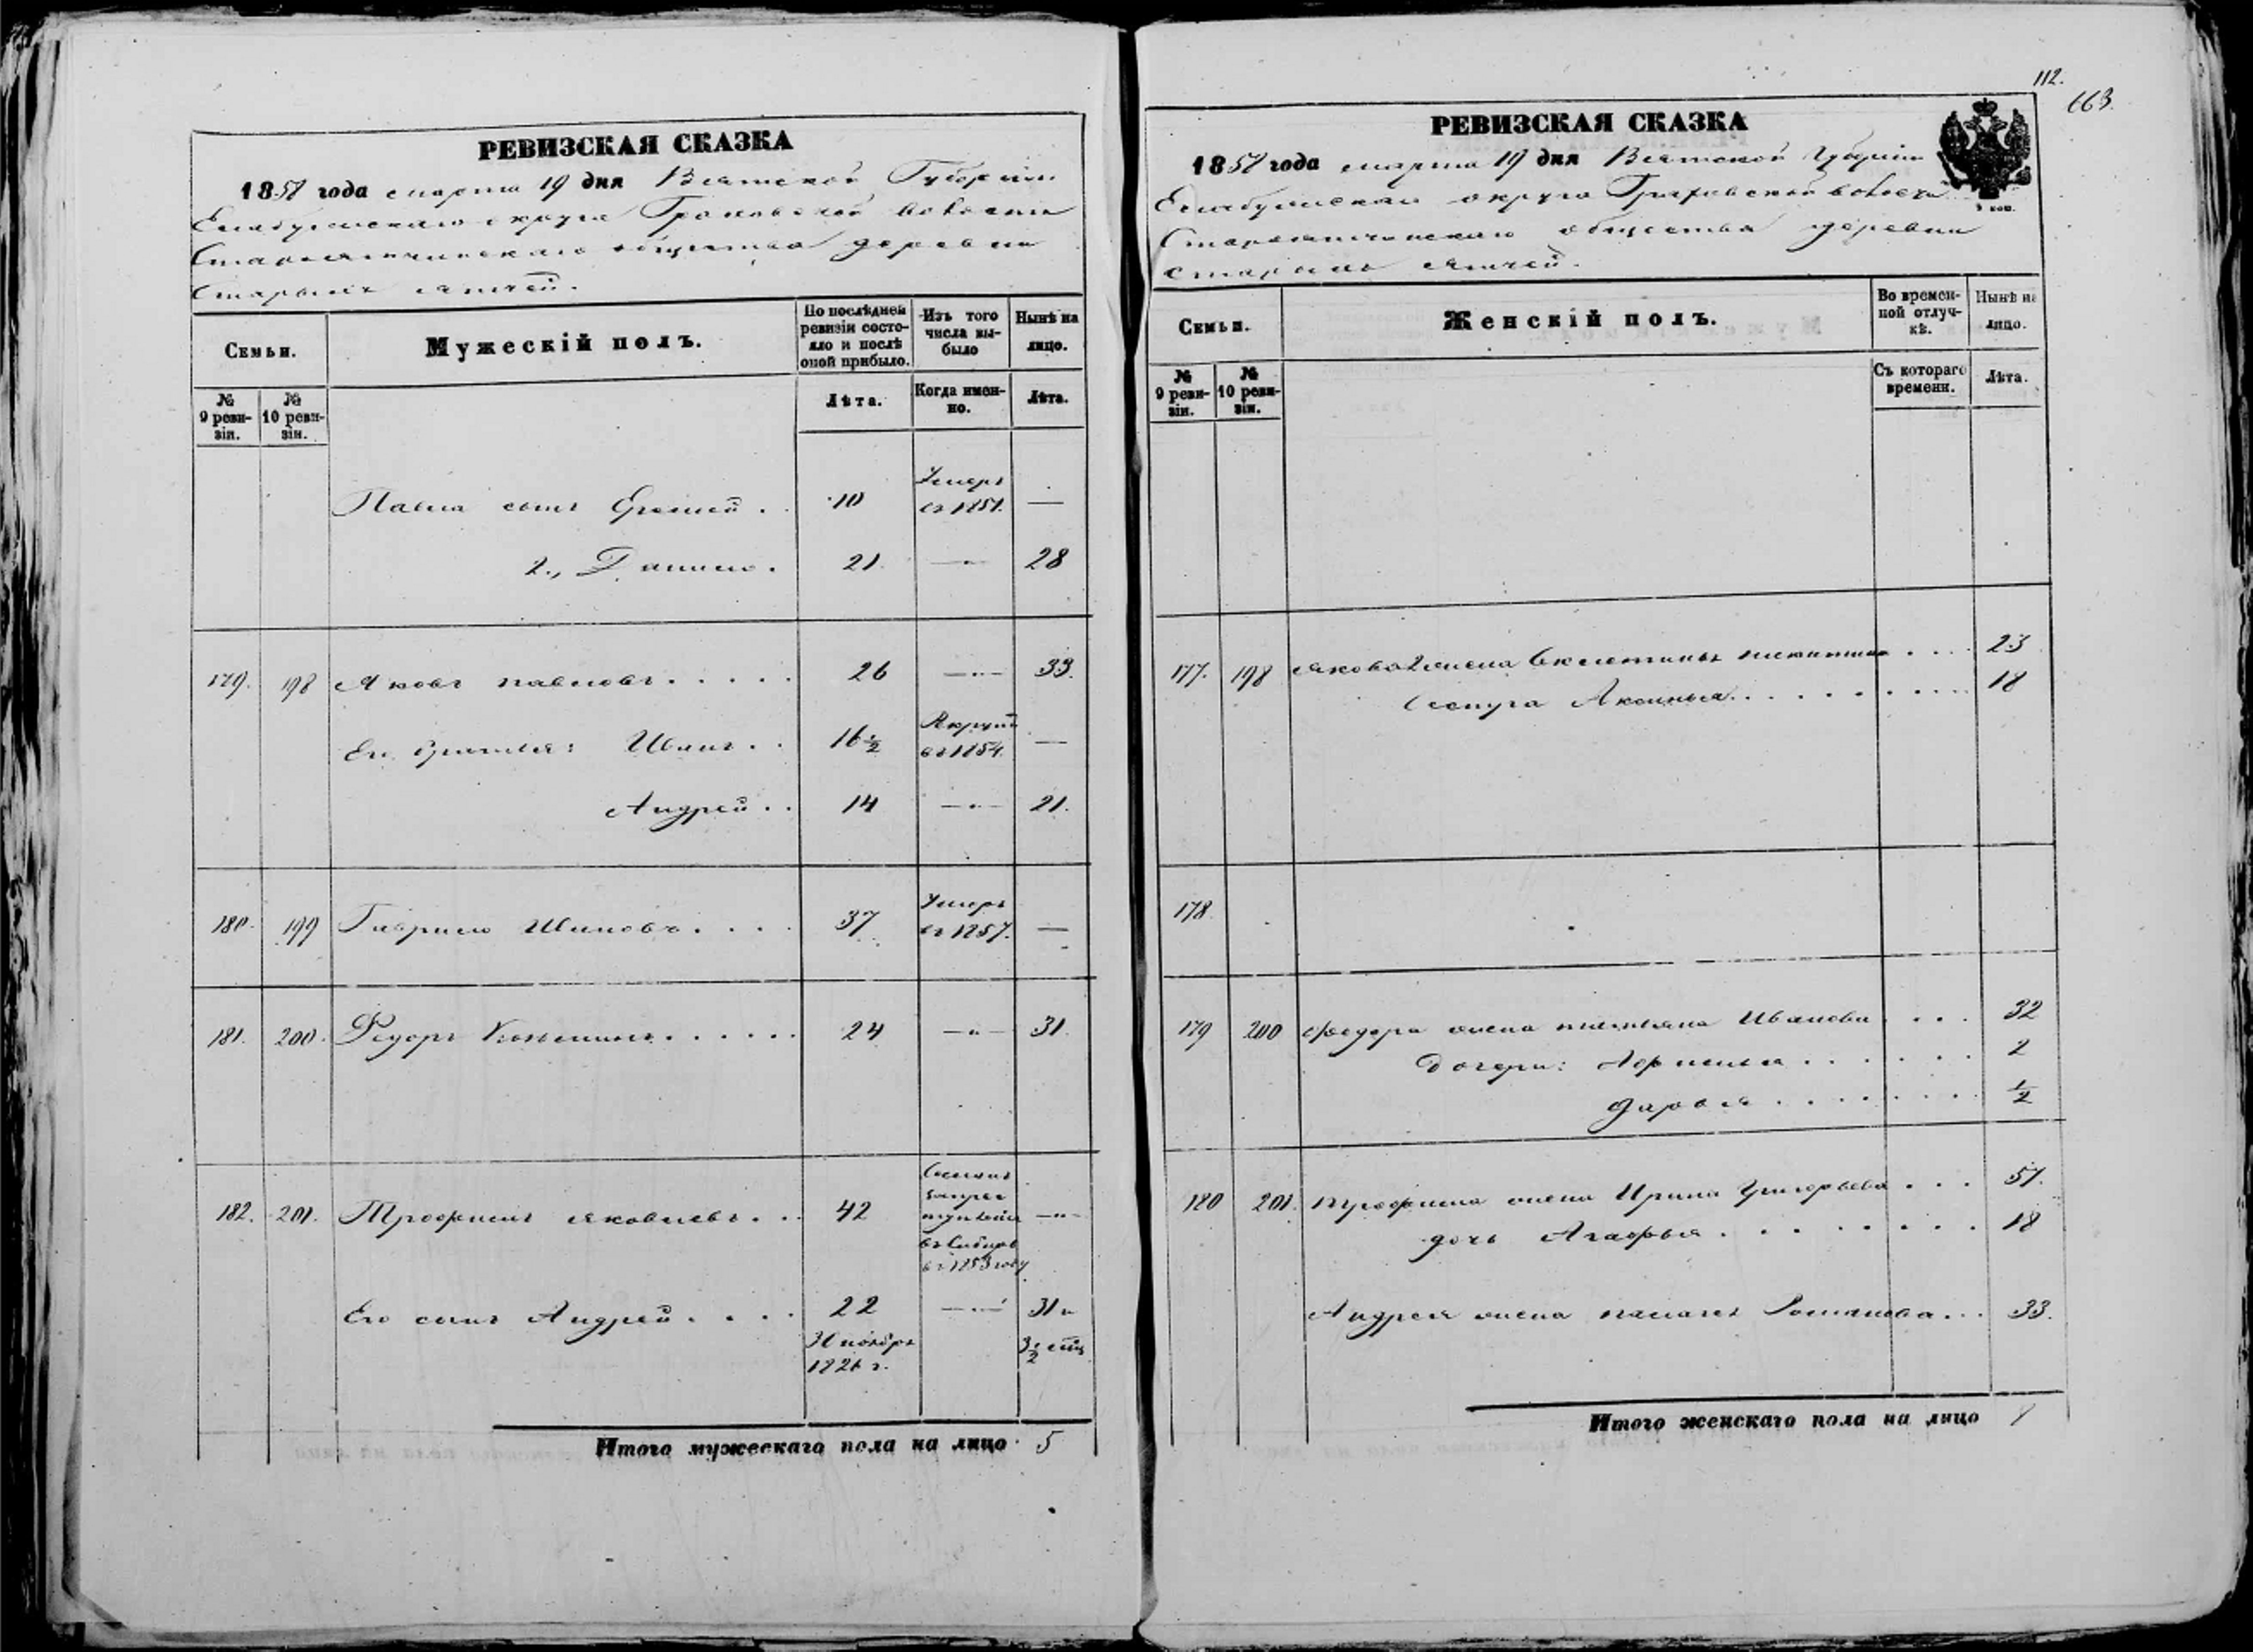 РЕВИЗСКАЯ СКАЗКА
1858 года марта 19 дня Вятской Губернии
Елабужскаго округа Граховской волости
Староятчинскаго общества деревни
Старыхъ ятчей.
Семьи.
Мужескій полъ.
По послѣдней ревизіи состояло и послѣ оной прибыло.
Изъ того числа выбыло
Нынѣ на лицо.
№ 9 ревизіи.
№ 10 ревизіи.
Лѣта.
Когда именно.
Лѣта.
Павла сынъ Еремей . 10 Умеръ въ 1851. —
2., Данило . 21 —"— 28
179. 198 Яковъ павловъ . . . . . 26 —"— 33.
Его братья: Иванъ . . 16½ Рекрутъ въ 1854. —
Андрей . . 14 —"— 21.
180. 199 Гаврило Ивановъ . . . . 37 Умеръ въ 1857. —
181. 200. Федоръ . . . . . . 24 —"— 31.
182. 201. Трофимъ яковлевъ . . . 42 въ Сибирь въ 1853 году —"—
Его сынъ Андрей . . . . 22 —"— 31 и
3½ мѣс
1826 г.
Итого мужескаго пола на лицо 5
112.
663.
РЕВИЗСКАЯ СКАЗКА
1858 года марта 19 дня Вятской Губернии
Елабужскаго округа Граховской волости
Староятчинскаго общества деревни
Старыхъ ятчей.
Семьи.
Женскій полъ.
Во временной отлучкѣ.
Нынѣ на лицо.
№ 9 ревизіи.
№ 10 ревизіи.
Съ котораго времени.
Лѣта.
177. 198 Якова жена никитина . . . . 23
Сестра Аксинья . . . . . . . . . 18
178.
179 200 Федора жена татьяна Иванова . . . . 32
Дочери: . . . . . . 2
Дарья . . . . . . . . ½
180 201. трофима жена Ирина Григорьева . . . 51.
дочь Агафья . . . . . . . . 18
Андрея жена Романова . . . 33.
Итого женскаго пола на лицо